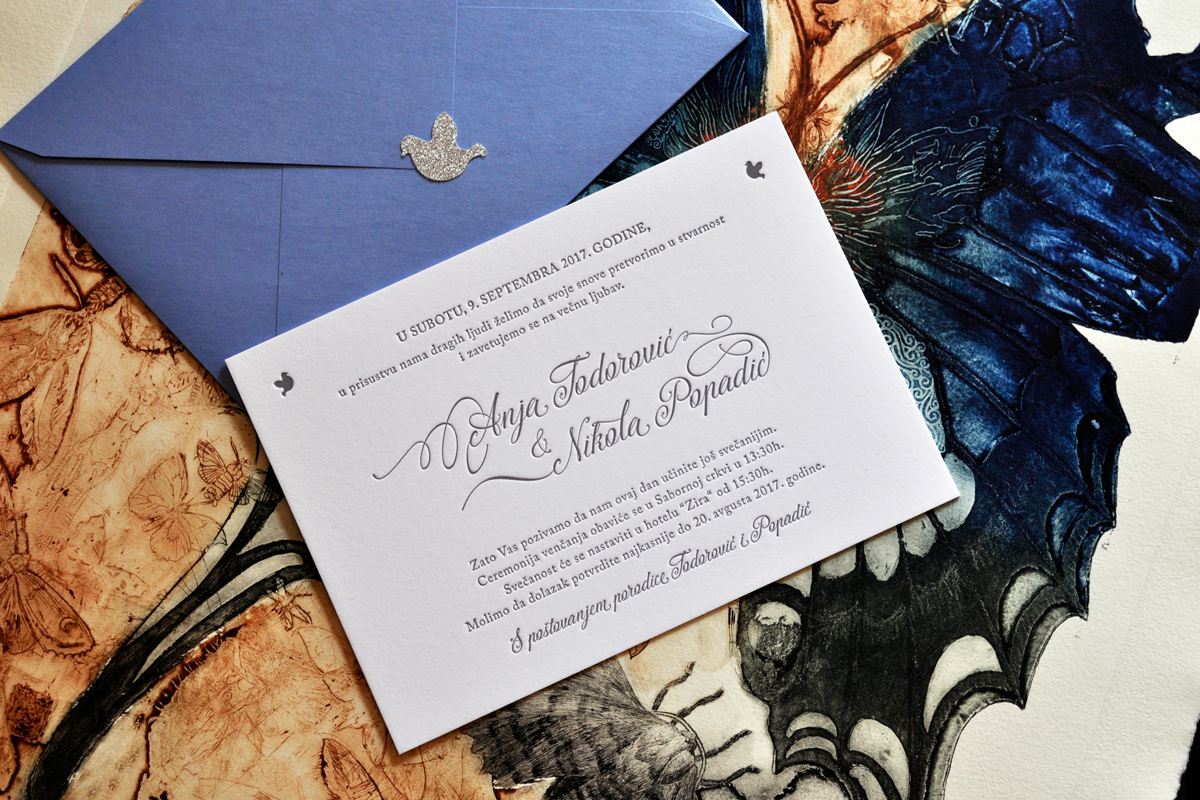 U SUBOTU, 9. SEPTEMBRA 2017. GODINE,
u prisustvu nama dragih ljudi želimo da svoje snove pretvorimo u stvarnost
i zavetujemo se na večnu ljubav.
Anja Todorović
& Nikola Popadić
Zato Vas pozivamo da nam ovaj dan učinite još svečanijim.
Ceremonija venčanja obaviće se u Sabornoj crkvi u 13:30h.
Svečanost će se nastaviti u hotelu “Zira“ od 15:30h.
Molimo da dolazak potvrdite najkasnije do 20. avgusta 2017. godine.
S poštovanjem porodice Todorović i Popadić